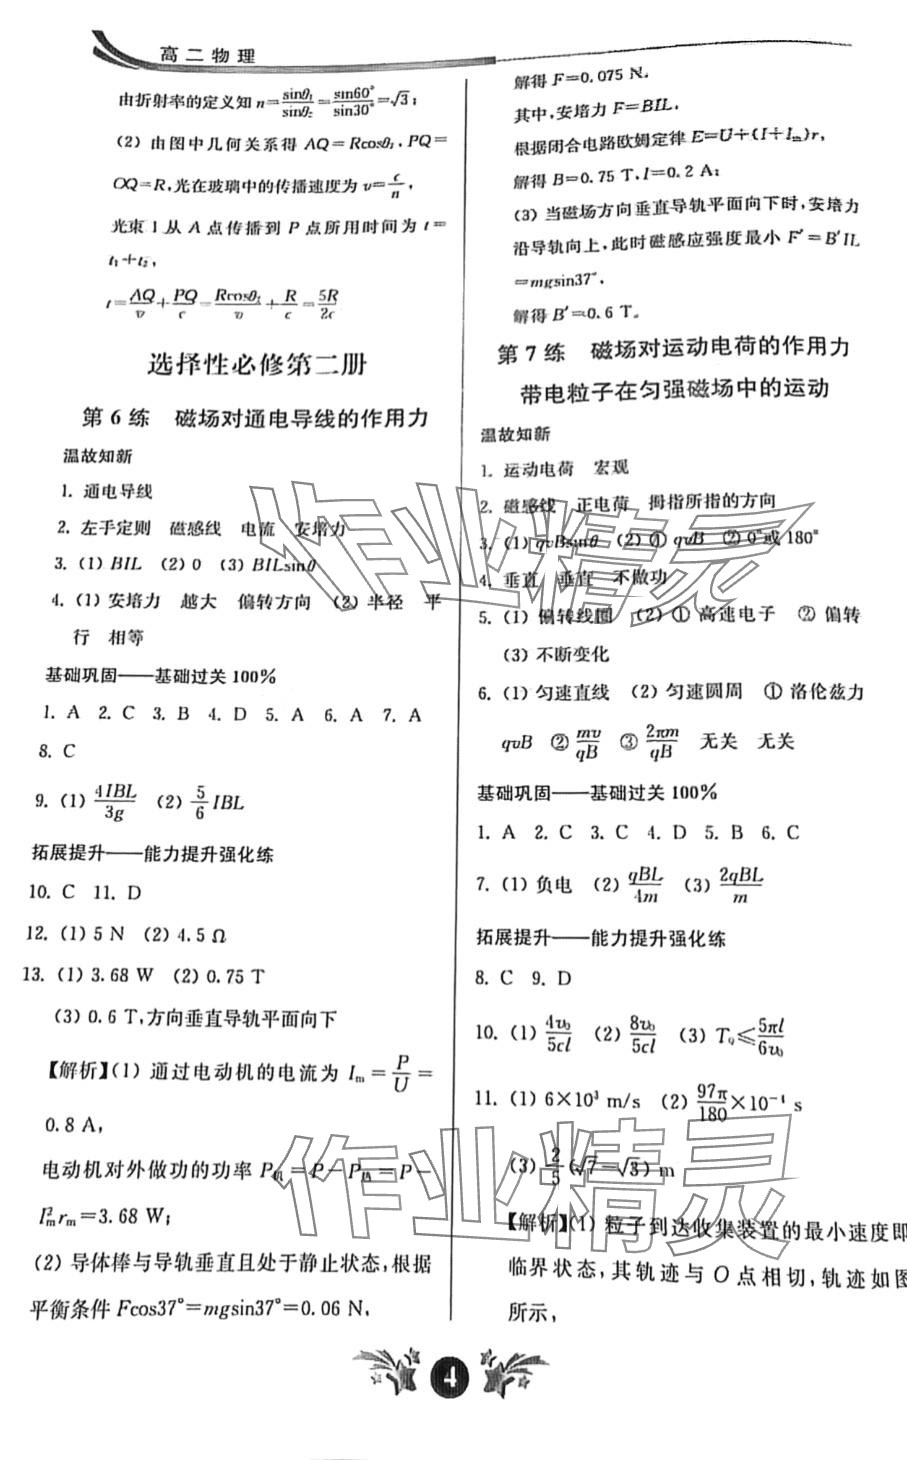 高二物理
由折射率的定义知 n=sinθ₁/sinθ₂=sin60°/sin30°=√3；
(2) 由图中几何关系得 AQ=Rcosθ₂，PQ=
OQ=R，光在玻璃中的传播速度为 v=c/n，
光束 1 从 A 点传播到 P 点所用时间为 t=
t₁+t₂，
t=AQ/v+PQ/c=Rcosθ₂/v+R/c=5R/2c
选择性必修第二册
第 6 练 磁场对通电导线的作用力
温故知新
1. 通电导线
2. 左手定则 磁感线 电流 安培力
3. (1) BIL (2) 0 (3) BILsinθ
4. (1) 安培力 越大 偏转方向 (2) 半径 平
行 相等
基础巩固——基础过关 100%
1. A 2. C 3. B 4. D 5. A 6. A 7. A
8. C
9. (1) 4IBL/3g (2) 5/6 IBL
拓展提升——能力提升强化练
10. C 11. D
12. (1) 5 N (2) 4.5 Ω
13. (1) 3.68 W (2) 0.75 T
(3) 0.6 T，方向垂直导轨平面向下
【解析】(1) 通过电动机的电流为 Iₘ=P/U=
0.8 A，
电动机对外做功的功率 P机=P－P热=P－
Iₘ²rₘ=3.68 W；
(2) 导体棒与导轨垂直且处于静止状态，根据
平衡条件 Fcos37°=mgsin37°=0.06 N，
解得 F=0.075 N，
其中，安培力 F=BIL，
根据闭合电路欧姆定律 E=U+(I+Iₘ)r，
解得 B=0.75 T，I=0.2 A；
(3) 当磁场方向垂直导轨平面向下时，安培力
沿导轨向上，此时磁感应强度最小 F′=B′IL
=mgsin37°，
解得 B′=0.6 T。
第 7 练 磁场对运动电荷的作用力
带电粒子在匀强磁场中的运动
温故知新
1. 运动电荷 宏观
2. 磁感线 正电荷 拇指所指的方向
3. (1) qvBsinθ (2) ① qvB ② 0°或180°
4. 垂直 垂直 不做功
5. (1) 偏转线圈 (2) ① 高速电子 ② 偏转
(3) 不断变化
6. (1) 匀速直线 (2) 匀速圆周 ① 洛伦兹力
qvB ② mv/qB ③ 2πm/qB 无关 无关
基础巩固——基础过关 100%
1. A 2. C 3. C 4. D 5. B 6. C
7. (1) 负电 (2) qBL/4m (3) 2qBL/m
拓展提升——能力提升强化练
8. C 9. D
10. (1) 4v₀/5cl (2) 8v₀/5cl (3) T₀≤5πl/6v₀
11. (1) 6×10³ m/s (2) 97π/180×10⁻⁴ s
(3) 2/5(√7－√3) m
【解析】(1) 粒子到达收集装置的最小速度即
临界状态，其轨迹与 O 点相切，轨迹如图
所示，
作业精灵
作业精灵
4